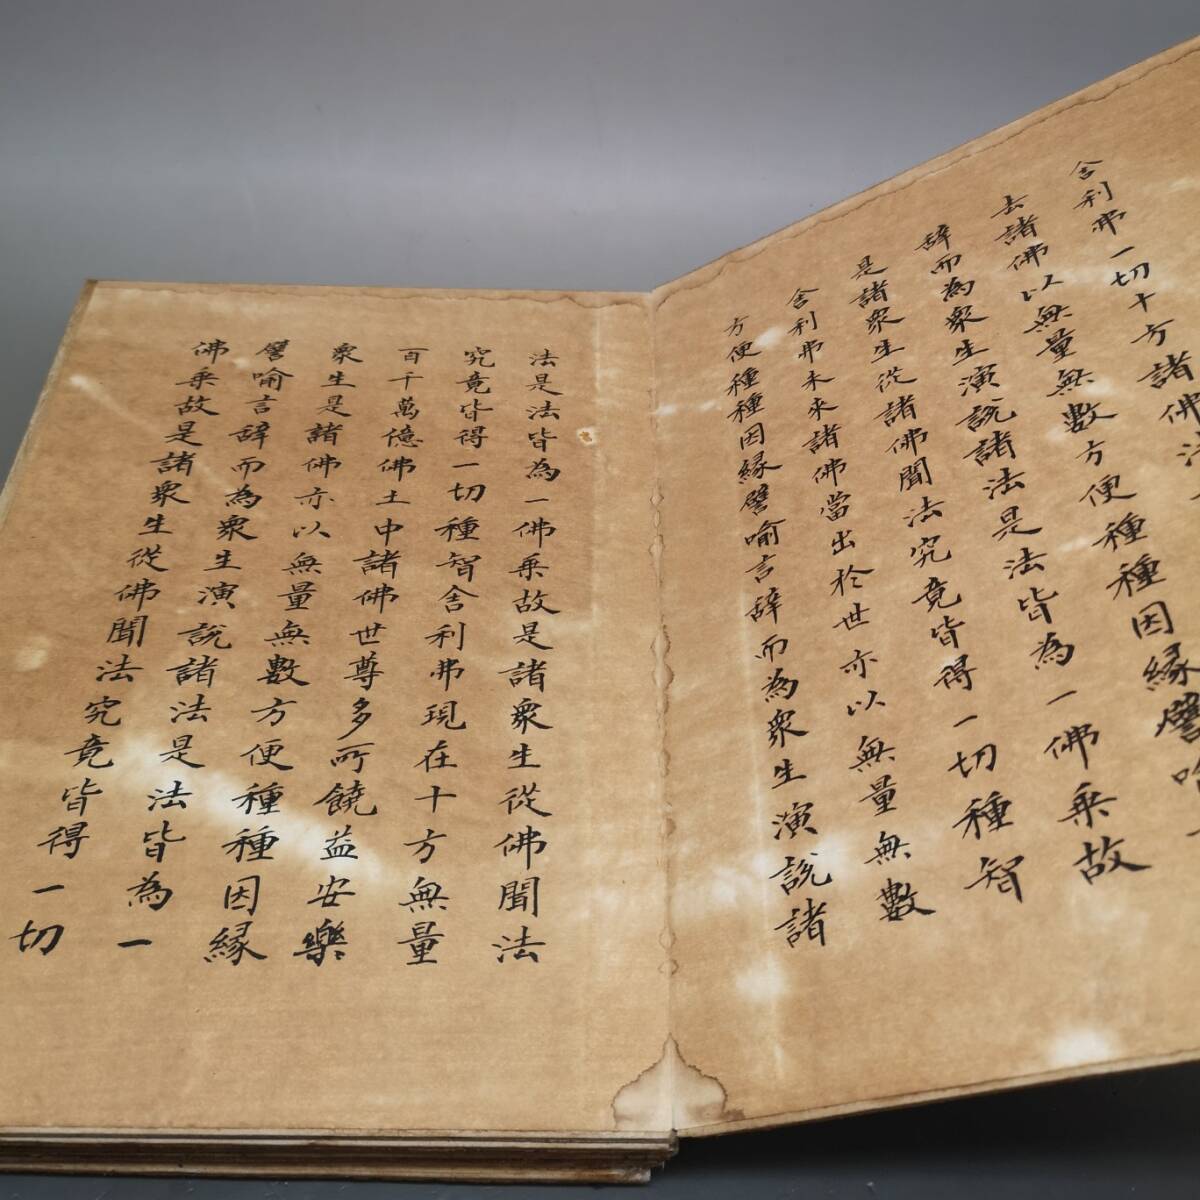 舍利弗一切十方諸佛法
去諸佛以無量無數方便種種因縁譬喻
辭而為衆生演說諸法是法皆為一佛乗故
是諸衆生從諸佛聞法究竟皆得一切種智
舍利弗未來諸佛當出於世亦以無量無數
方便種種因縁譬喻言辭而為衆生演說諸
法是法皆為一佛乗故是諸衆生從佛聞法
究竟皆得一切種智舍利弗現在十方無量
百千萬億佛土中諸佛世尊多所饒益安樂
衆生是諸佛亦以無量無數方便種種因縁
譬喻言辭而為衆生演說諸法是法皆為一
佛乗故是諸衆生從佛聞法究竟皆得一切